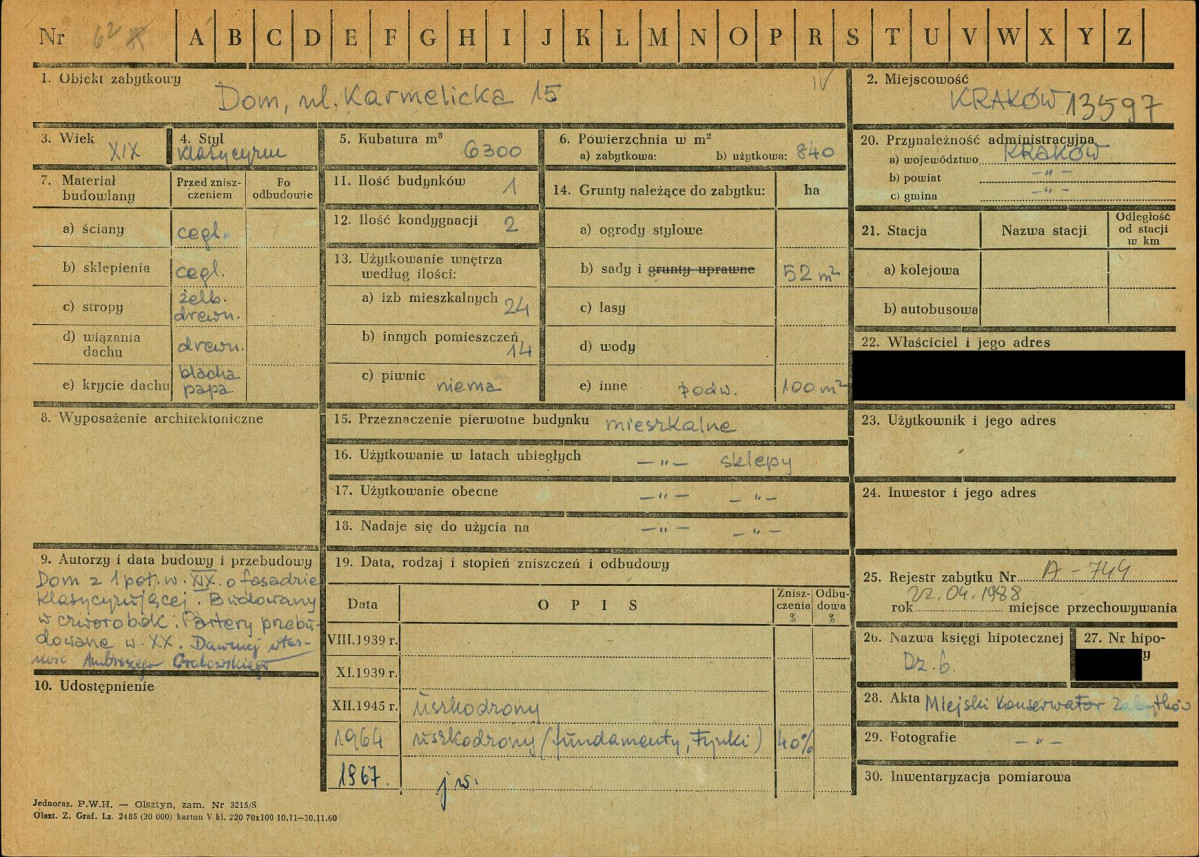 Nr 62 A B C D E F G H I J K L M N O P R S T U V W X Y Z
1. Obiekt zabytkowy
Dom, ul. Karmelicka 15
IV
2. Miejscowość
KRAKÓW 13597
3. Wiek
XIX
4. Styl
klasycyzm
5. Kubatura m³ 6300
6. Powierzchnia w m²
a) zabytkowa: b) użytkowa: 840
20. Przynależność administracyjna
a) województwo Kraków
b) powiat — „ —
c) gmina — „ —
7. Materiał budowlany
Przed zniszczeniem
Po odbudowie
a) ściany cegl.
b) sklepienia cegl.
c) stropy żelb. drewn.
d) wiązania dachu drewn.
e) krycie dachu blacha papa
11. Ilość budynków 1
12. Ilość kondygnacji 2
13. Użytkowanie wnętrza według ilości:
a) izb mieszkalnych 24
b) innych pomieszczeń 14
c) piwnic niema
14. Grunty należące do zabytku: ha
a) ogrody stylowe
b) sady i grunty uprawne 52 m²
c) lasy
d) wody
e) inne podw. 100 m²
21. Stacja
Nazwa stacji
Odległość od stacji w km
a) kolejowa
b) autobusowa
22. Właściciel i jego adres
8. Wyposażenie architektoniczne
15. Przeznaczenie pierwotne budynku mieszkalne
16. Użytkowanie w latach ubiegłych — „ — sklepy
17. Użytkowanie obecne — „ — — „ —
18. Nadaje się do użycia na — „ — — „ —
23. Użytkownik i jego adres
24. Inwestor i jego adres
9. Autorzy i data budowy i przebudowy
Dom z 1 poł. w. XIX. o fasadzie
klasycyzującej. Budowany
w czworobok. Partery przebu-
dowane w. XX. Dawniej włas-
ność Ambrożego Grabowskiego
10. Udostępnienie
19. Data, rodzaj i stopień zniszczeń i odbudowy
Data
OPIS
Zniszczenia %
Odbudowa %
VIII.1939 r.
XI.1939 r.
XII.1945 r. uszkodzony
1964 uszkodzony (fundamenty, tynki) 40%
1967. jw.
25. Rejestr zabytku Nr A - 744
22.04.1988
rok miejsce przechowywania
26. Nazwa księgi hipotecznej
Dz. 6.
27. Nr hipo-
y
28. Akta Miejski Konserwator Zabytków
29. Fotografie — „ —
30. Inwentaryzacja pomiarowa
Jednoraz. P.W.H. — Olsztyn, zam. Nr 3215/S
Olszt. Z. Graf. Lz. 2485 (30 000) karton V kl. 220 70x100 10.11—30.11.60